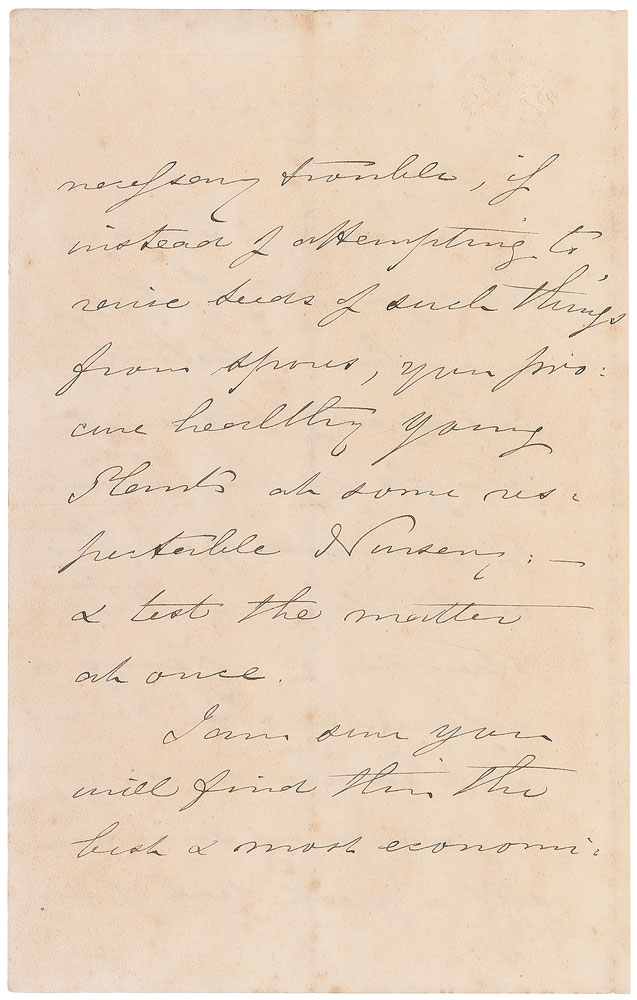 necessary trouble, if
instead of attempting to
raise seeds of such things
from spores, you pro:
cure healthy young
Plants at some res:
pectable Nursery: —
& test the matter
at once.
I am sure you
will find this the
best & most economi: